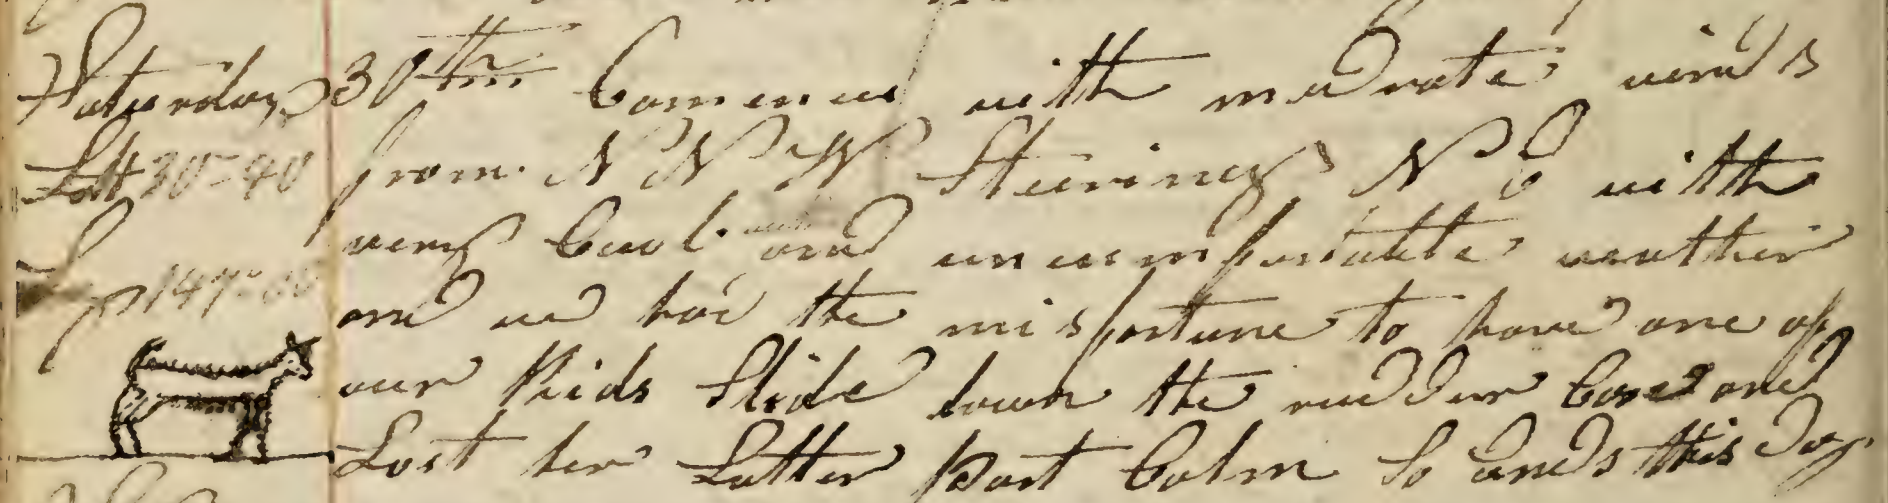 Saturday 30th Comences with moderate winds
Latt 30-40 from N N W Steering N E with
very Cool and uncomfortable weather
Lo 147-00 and we had the misfortune to have one of
our Kids Slide down the rudder Case and
Lost her Latter part Calm So Ends this day